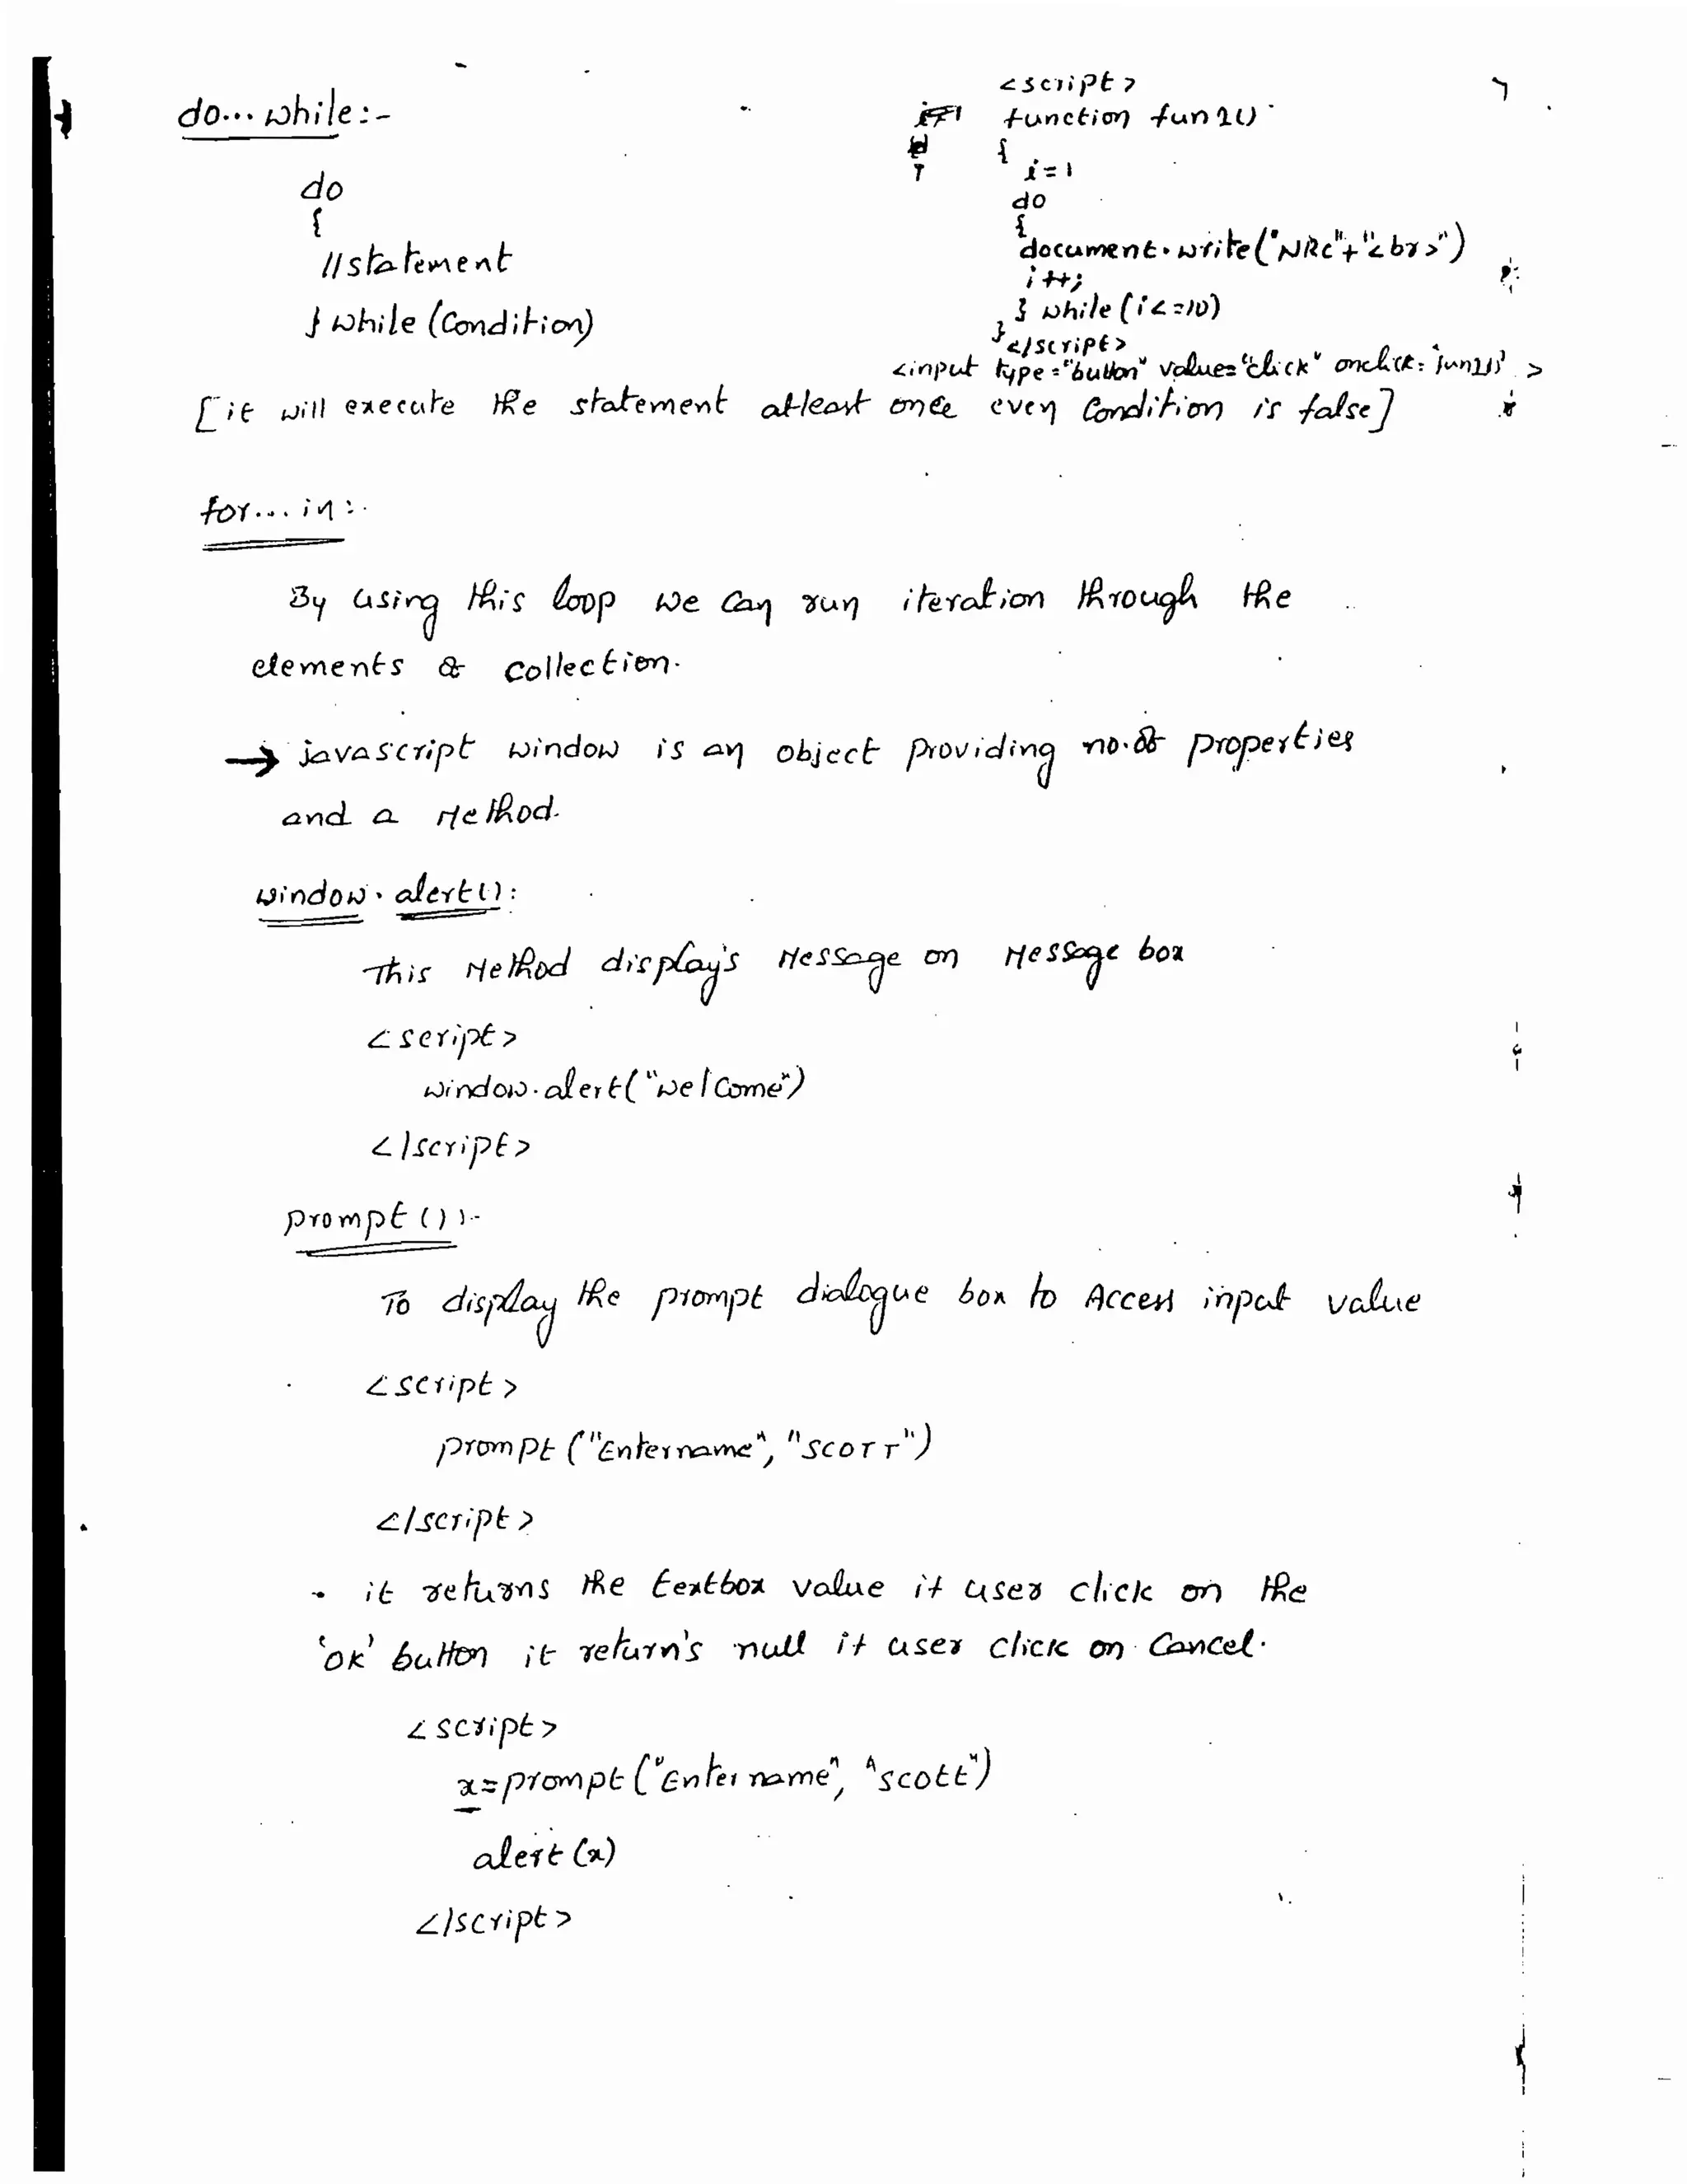 do... while:-
do
{
//statement
} while (Condition)
<script>
function fun1()
{
i=1
do
{
document.write("NRC"+"<br>")
i++;
} while (i<=10)
}
</script>
<input type="button" value="click" onclick="fun1()">
[it will execute the statement atleast once even Condition is false]
for... in:-
By using this loop we can run iteration through the
elements & collection.
→ javascript window is an object providing no.of properties
and a Method.
window.alert():
This Method display's Message on Message box
<script>
window.alert("welcome")
</script>
prompt():-
To display the prompt dialogue box to Access input value
<script>
prompt ("Entername", "SCOTT")
</script>
- it returns the textbox value if user click on the
'OK' button it return's null if user click on Cancel.
<script>
x=prompt ("Enter name", "scott")
alert (x)
</script>